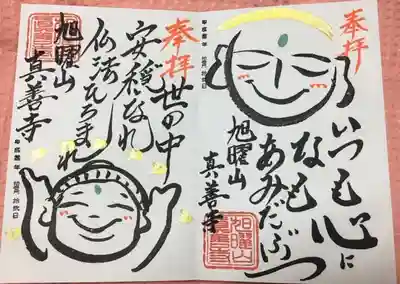 奉拝
いつも心に
なも
あみだぶつ
旭曜山
真善寺
奉拝
世の中
安穏なれ
仏法ひろまれ
旭曜山
真善寺